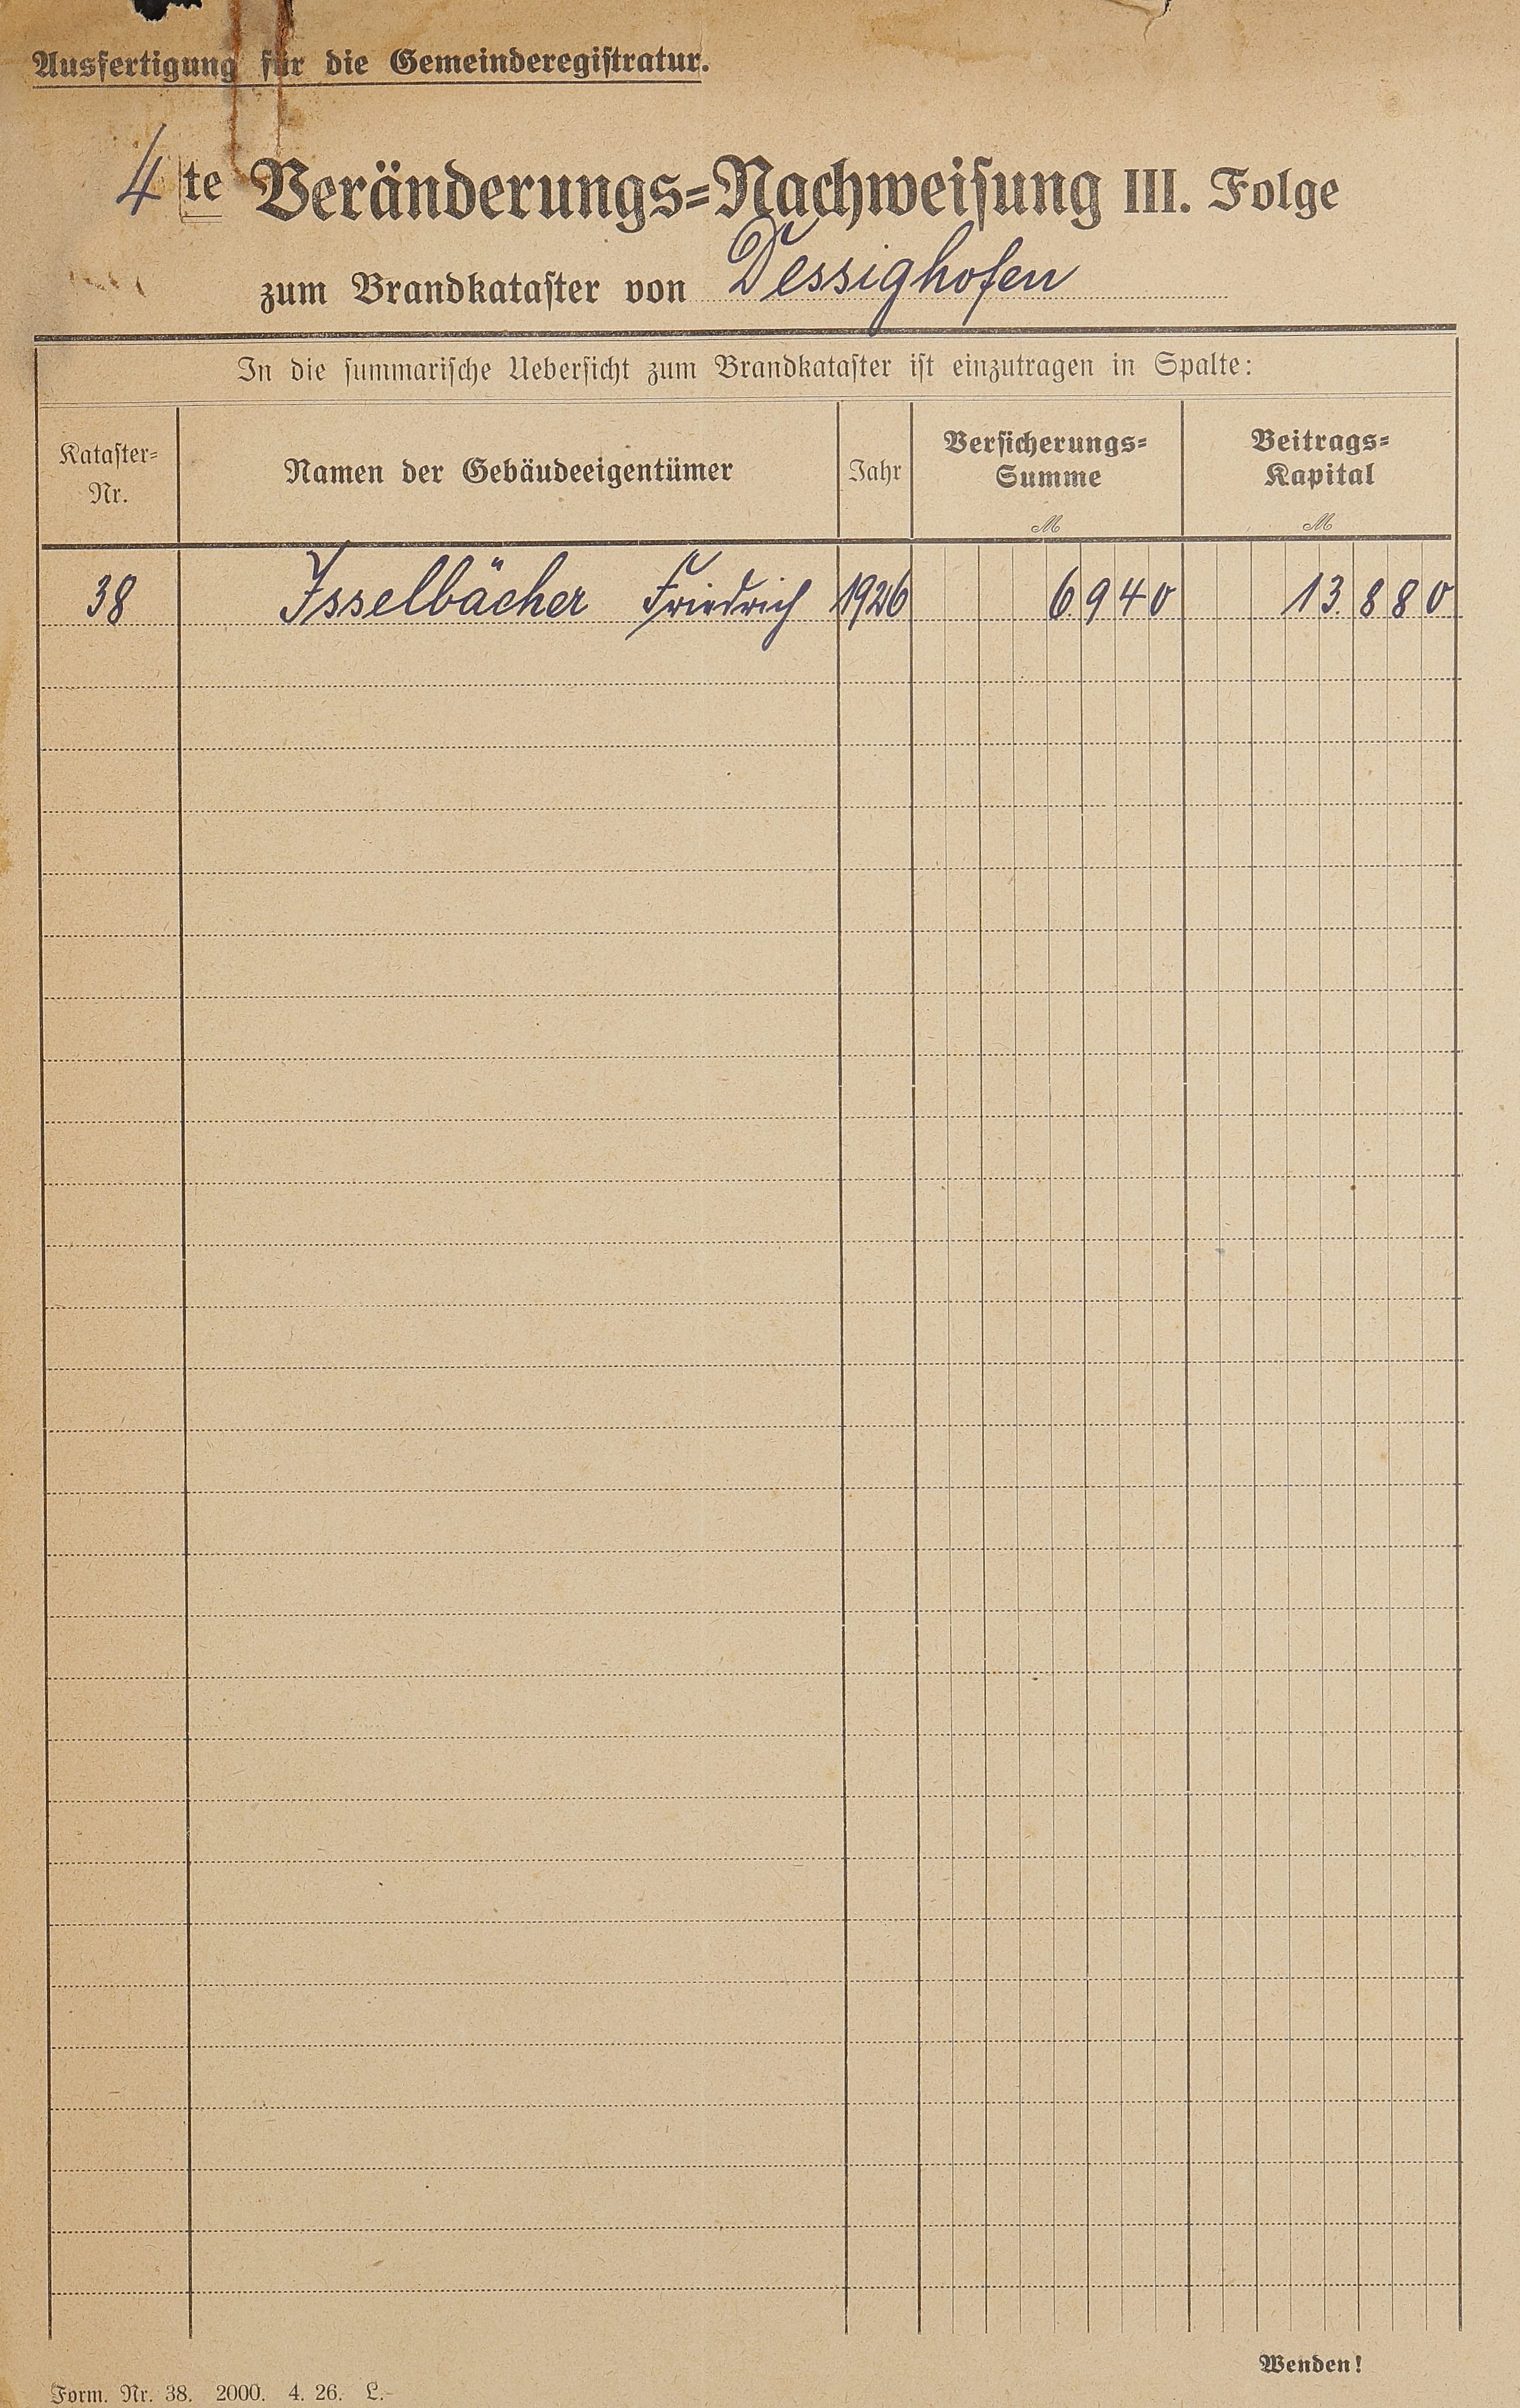 Ausfertigung für die Gemeinderegistratur.
4te Veränderungs-Nachweisung III. Folge
zum Brandkataster von Dessighofen
In die summarische Uebersicht zum Brandkataster ist einzutragen in Spalte:
Kataster-
Nr.
Namen der Gebäudeeigentümer
Jahr
Versicherungs-
Summe
M
Beitrags-
Kapital
M
38 Isselbächer Friedrich 1926 6940 13.880
Wenden!
Form. Nr. 38. 2000. 4. 26. L.-